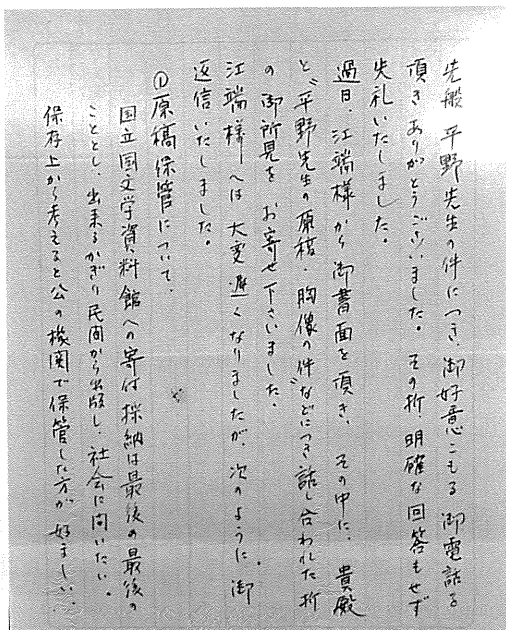 先般 平野先生の件につき、御好意こもる御電話を
頂きありがとうございました。その折、明確な回答もせず
失礼いたしました。
過日、江端様から御書面を頂き、その中に、貴殿
と"平野先生の原稿・胸像の件"などにつき話し合われた折
の御所見をお寄せ下さいました。
江端様へは大変遅くなりましたが、次のように、御
返信いたしました。
①原稿保管について、
国立国文学資料館への寄は採納は最後の最後の
こととし、出来るかぎり民間から出版し、社会に問いたい。
保存上から考えると公の機関で保管した方が好ましい、